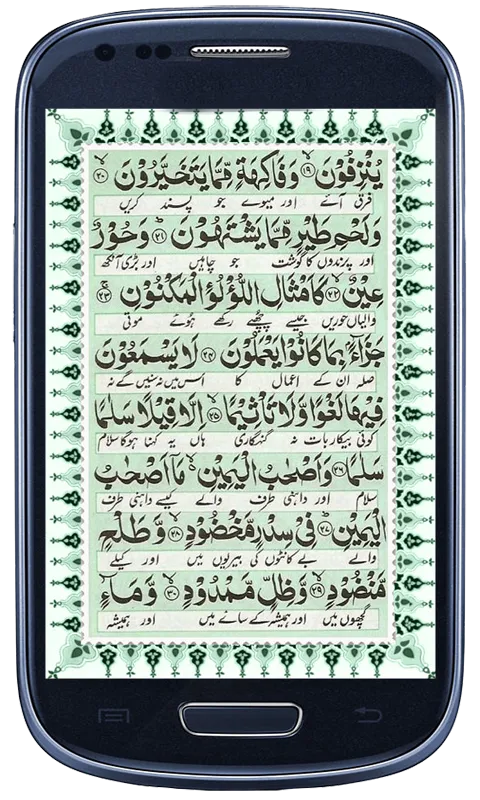 يُنْزِفُوْنَ ۱۹ وَفَاكِهَةٍ مِّمَّا يَتَخَيَّرُوْنَ ۲۰
فرق آئے اور میوے جو پسند کریں
وَلَحْمِ طَيْرٍ مِّمَّا يَشْتَهُوْنَ ۲۱ وَحُوْرٌ
اور پرندوں کا گوشت جو چاہیں اور بڑی آنکھ
عِيْنٌ ۲۲ كَاَمْثَالِ اللُّؤْلُؤِ الْمَكْنُوْنِ ۲۳
والیاں حوریں جیسے چھپے رکھے ہوئے موتی
جَزَآءًۢ بِمَا كَانُوْا يَعْمَلُوْنَ ۲۴ لَا يَسْمَعُوْنَ
صلہ ان کے اعمال کا اس میں نہ سنیں گے نہ
فِيْهَا لَغْوًا وَّلَا تَاْثِيْمًا ۲۵ اِلَّا قِيْلًا سَلٰمًا
کوئی بیکار بات نہ گنہگاری ہاں یہ کہنا ہوگا سلام
سَلٰمًا ۲۶ وَاَصْحٰبُ الْيَمِيْنِ مَآ اَصْحٰبُ
سلام اور داہنی طرف والے کیسے داہنی طرف
الْيَمِيْنِ ۲۷ فِيْ سِدْرٍ مَّخْضُوْدٍ ۲۸ وَّطَلْحٍ
والے بے کانٹوں کی بیریوں میں اور کیلے
مَّنْضُوْدٍ ۲۹ وَّظِلٍّ مَّمْدُوْدٍ ۳۰ وَّمَآءٍ
گچھوں میں اور ہمیشہ کے سائے میں اور ہمیشہ